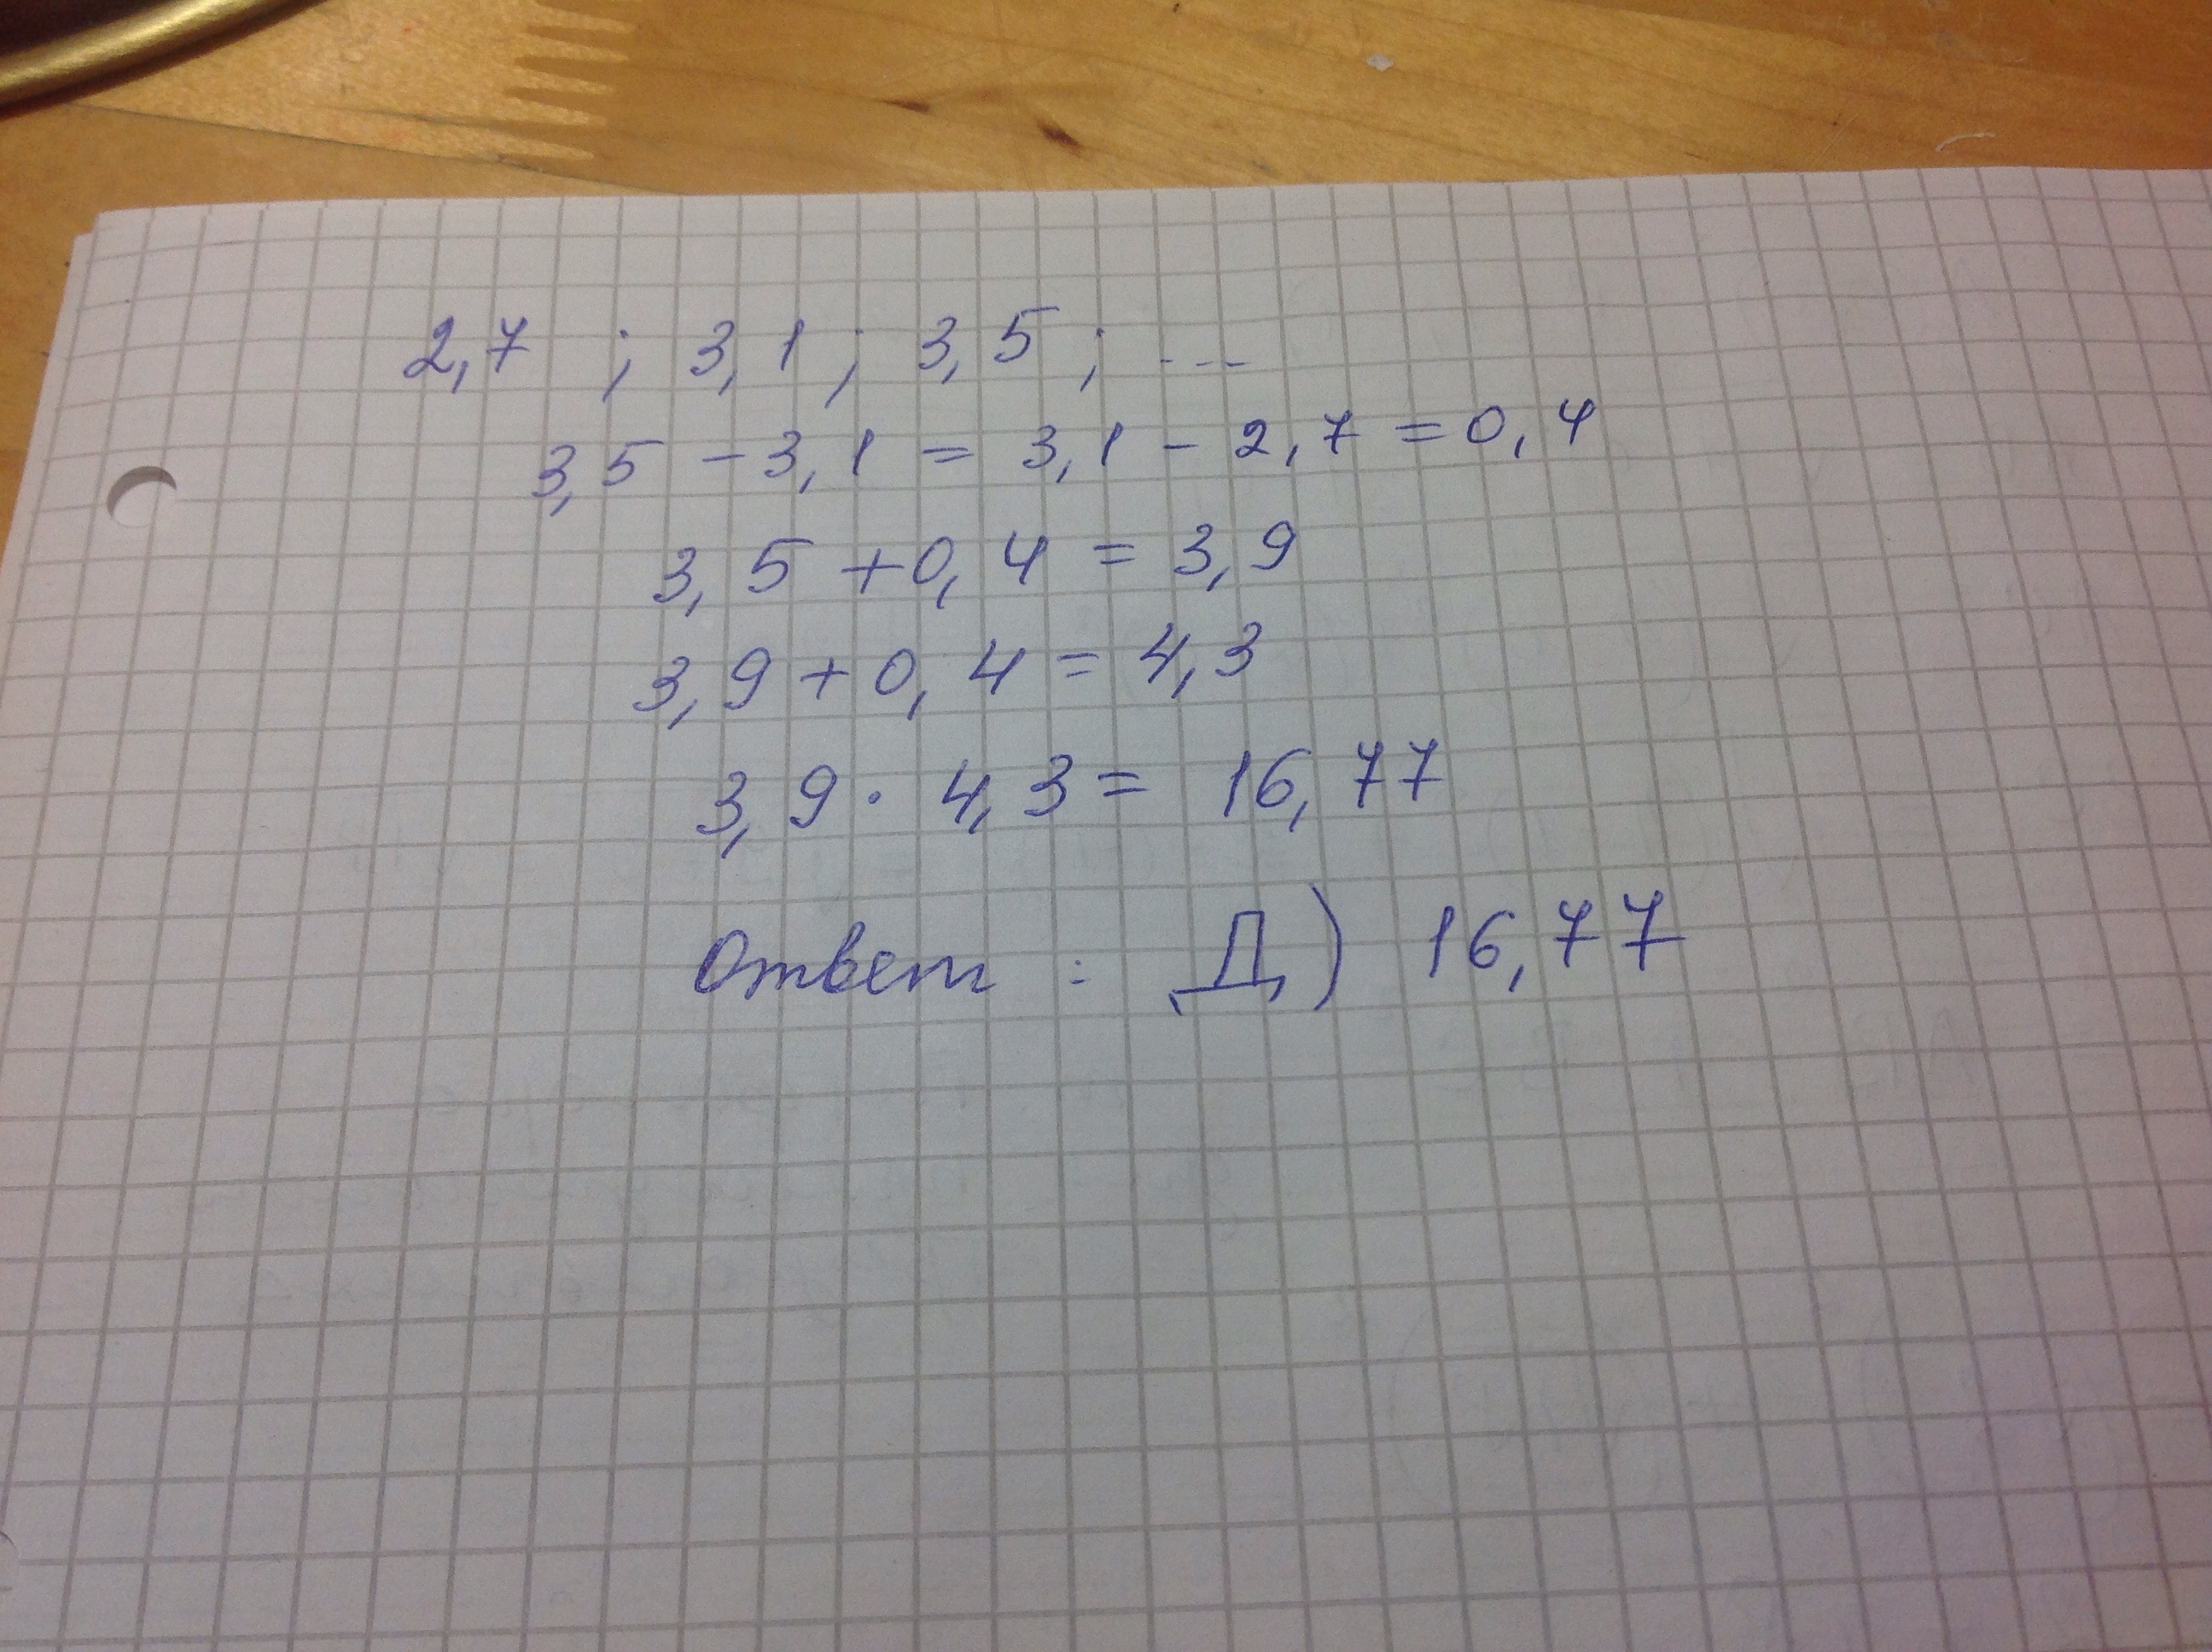 2,7 ; 3,1 ; 3,5 ; ...
3,5 - 3,1 = 3,1 - 2,7 = 0,4
3,5 + 0,4 = 3,9
3,9 + 0,4 = 4,3
3,9 · 4,3 = 16,77
Ответ : Д) 16,77